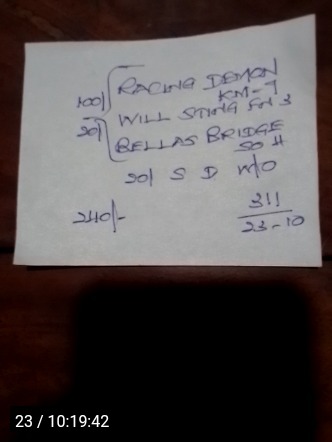 100/ RACING DEMON
KM-1
20/ WILL STING FN 3
BELLAS BRIDGE
SO 4
20/ S D W/O
240/- 311
23-10
23 / 10:19:42